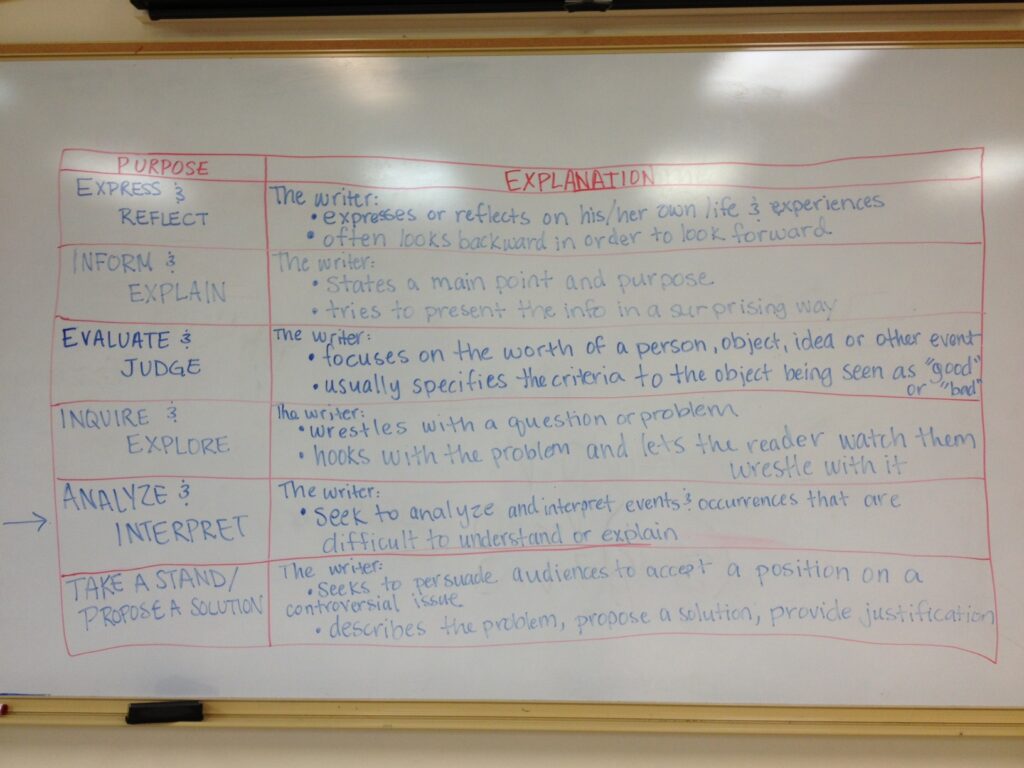 PURPOSE
EXPLANATION
EXPRESS &
REFLECT
The writer:
• expresses or reflects on his/her own life & experiences
• often looks backward in order to look forward.
INFORM &
EXPLAIN
The writer:
• States a main point and purpose.
• tries to present the info in a surprising way
EVALUATE &
JUDGE
The writer:
• focuses on the worth of a person, object, idea or other event
• usually specifies the criteria to the object being seen as "good"
or "bad"
INQUIRE &
EXPLORE
The writer:
• wrestles with a question or problem
• hooks with the problem and lets the reader watch them
wrestle with it
ANALYZE &
INTERPRET
The writer:
• Seek to analyze and interpret events & occurrences that are
difficult to understand or explain
TAKE A STAND/
PROPOSE A SOLUTION
The writer:
• Seeks to persuade audiences to accept a position on a
controversial issue.
• describes the problem, propose a solution, provide justification